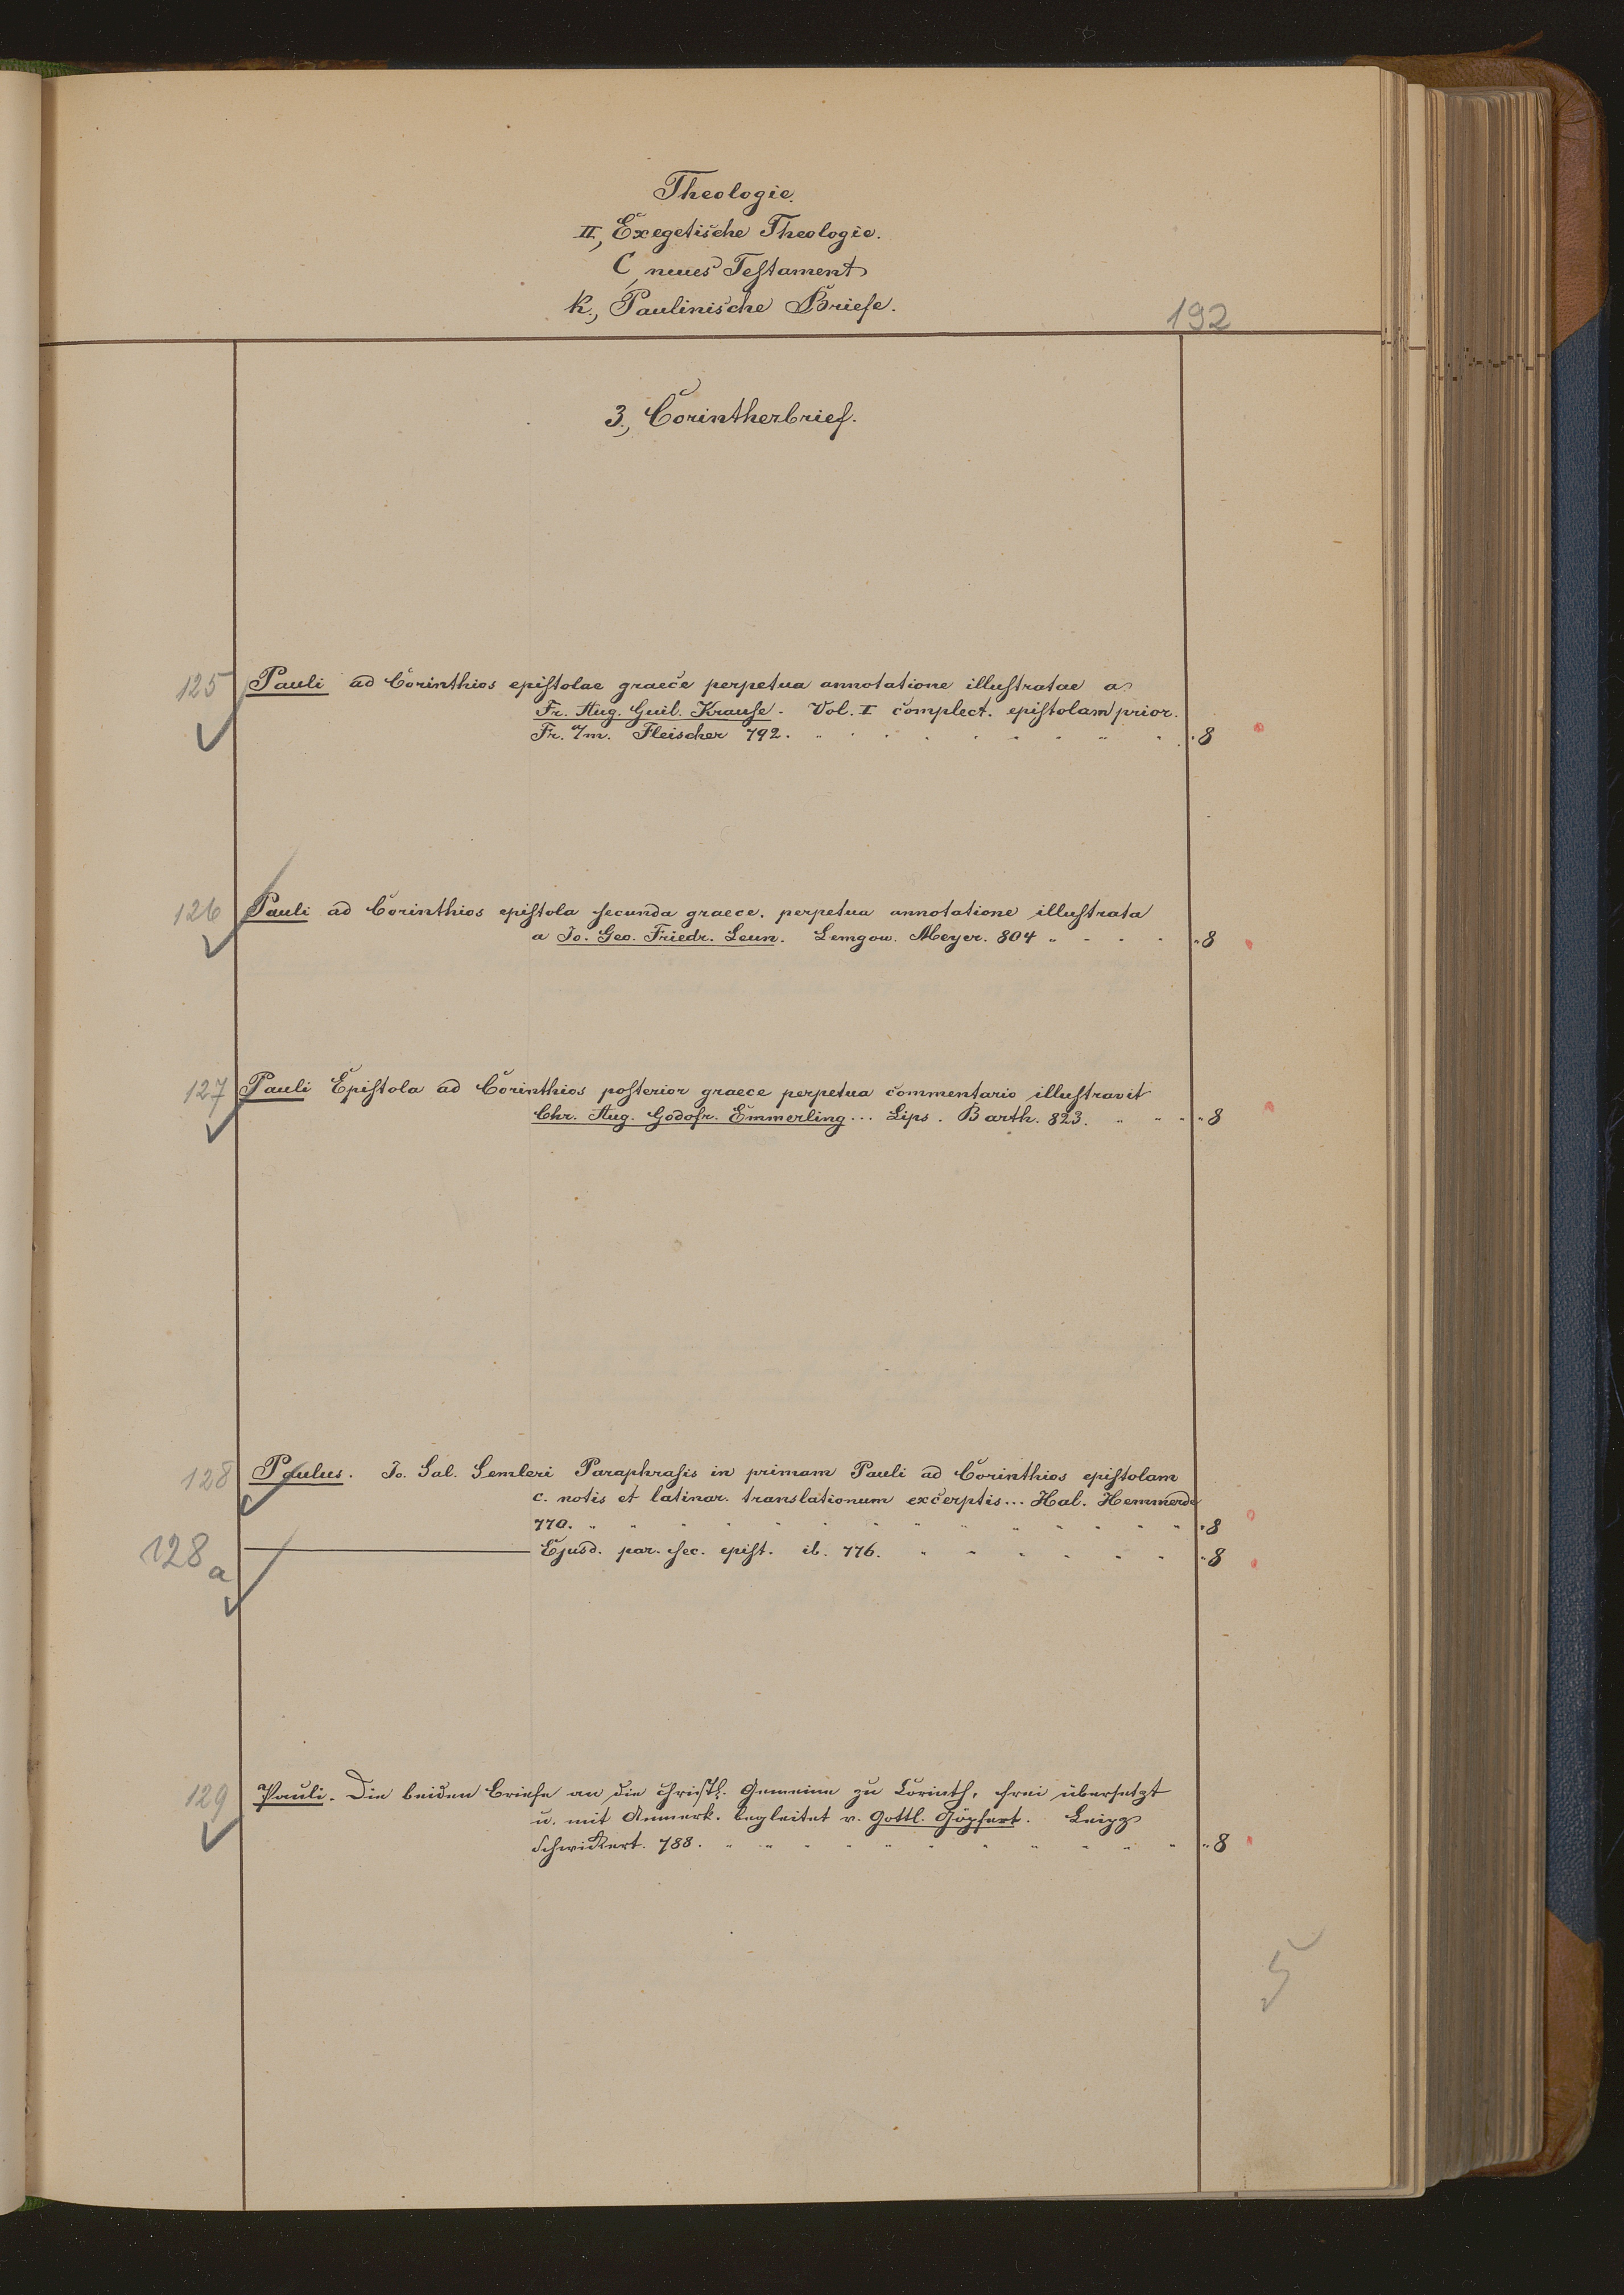 Theologie.
II., Exegetische Theologie.
C, neues Testament
k., Paulinische Briefe.
192
3., Corintherbrief.
125 Pauli ad Corinthios epistolae graece perpetua annotatione illustratae a
Fr. Aug. Guil. Krause. Vol. I complect. epistolam prior.
Fr. a/m. Fleischer 792. 8
126 Pauli ad Corinthios epistola secunda graece. perpetua annotatione illustrata
a Jo. Geo. Friedr. Leun. Lemgow. Meyer. 804 8
127 Pauli Epistola ad Corinthios posterior graece perpetua commentario illustravit
Chr. Aug. Godofr. Emmerling... Lips. Barth. 823. 8
128 Paulus. Jo. Sal. Semleri Paraphrasis in primam Pauli ad Corinthios epistolam
c. notis et latinar. translationum excerptis... Hal. Hemmerde
770. 8
128a Ejusd. par. sec. epist. ib. 776. 8
129 Pauli. Die beiden Briefe an die christl. Gemeine zu Corinth, frei übersetzt
u. mit Anmerk. begleitet v. Gottl. Göpfert. Leipz
Schwickert. 788. 8
5